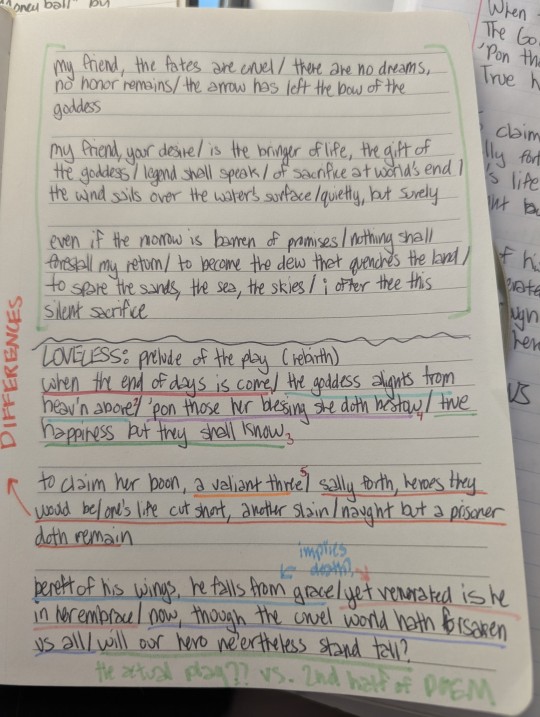 Moneyball" by
my friend, the fates are cruel/ there are no dreams,
no honor remains/ the arrow has left the bow of the
goddess
my friend, your desire/ is the bringer of life, the gift of
the goddess/ legend shall speak/ of sacrifice at world's end/
the wind sails over the water's surface/quietly, but surely
even if the morrow is barren of promises/nothing shall
forestall my return/ to become the dew that quenches the land/
to spare the sands, the sea, the skies/ i offer thee this
silent sacrifice
DIFFERENCES
LOVELESS: prelude of the play (rebirth)
when the end of days is come/ the goddess alights from
heav'n above/ 'pon those her blessing she doth bestow/ true
happiness but they shall know 3
to claim her boon, a valiant three/ sally forth, heroes they
would be/one's life cut short, another slain/naught but a prisoner
doth remain
implies
death?
bereft of his wings, he falls from grace/yet venerated is he
in her embrace/ now, though the cruel world hath forsaken
us all/ will our hero ne'ertheless stand tall?
the actual play?? vs. 2nd half of
When
The Go
'Pon th
True h
claim
lly fort
's life